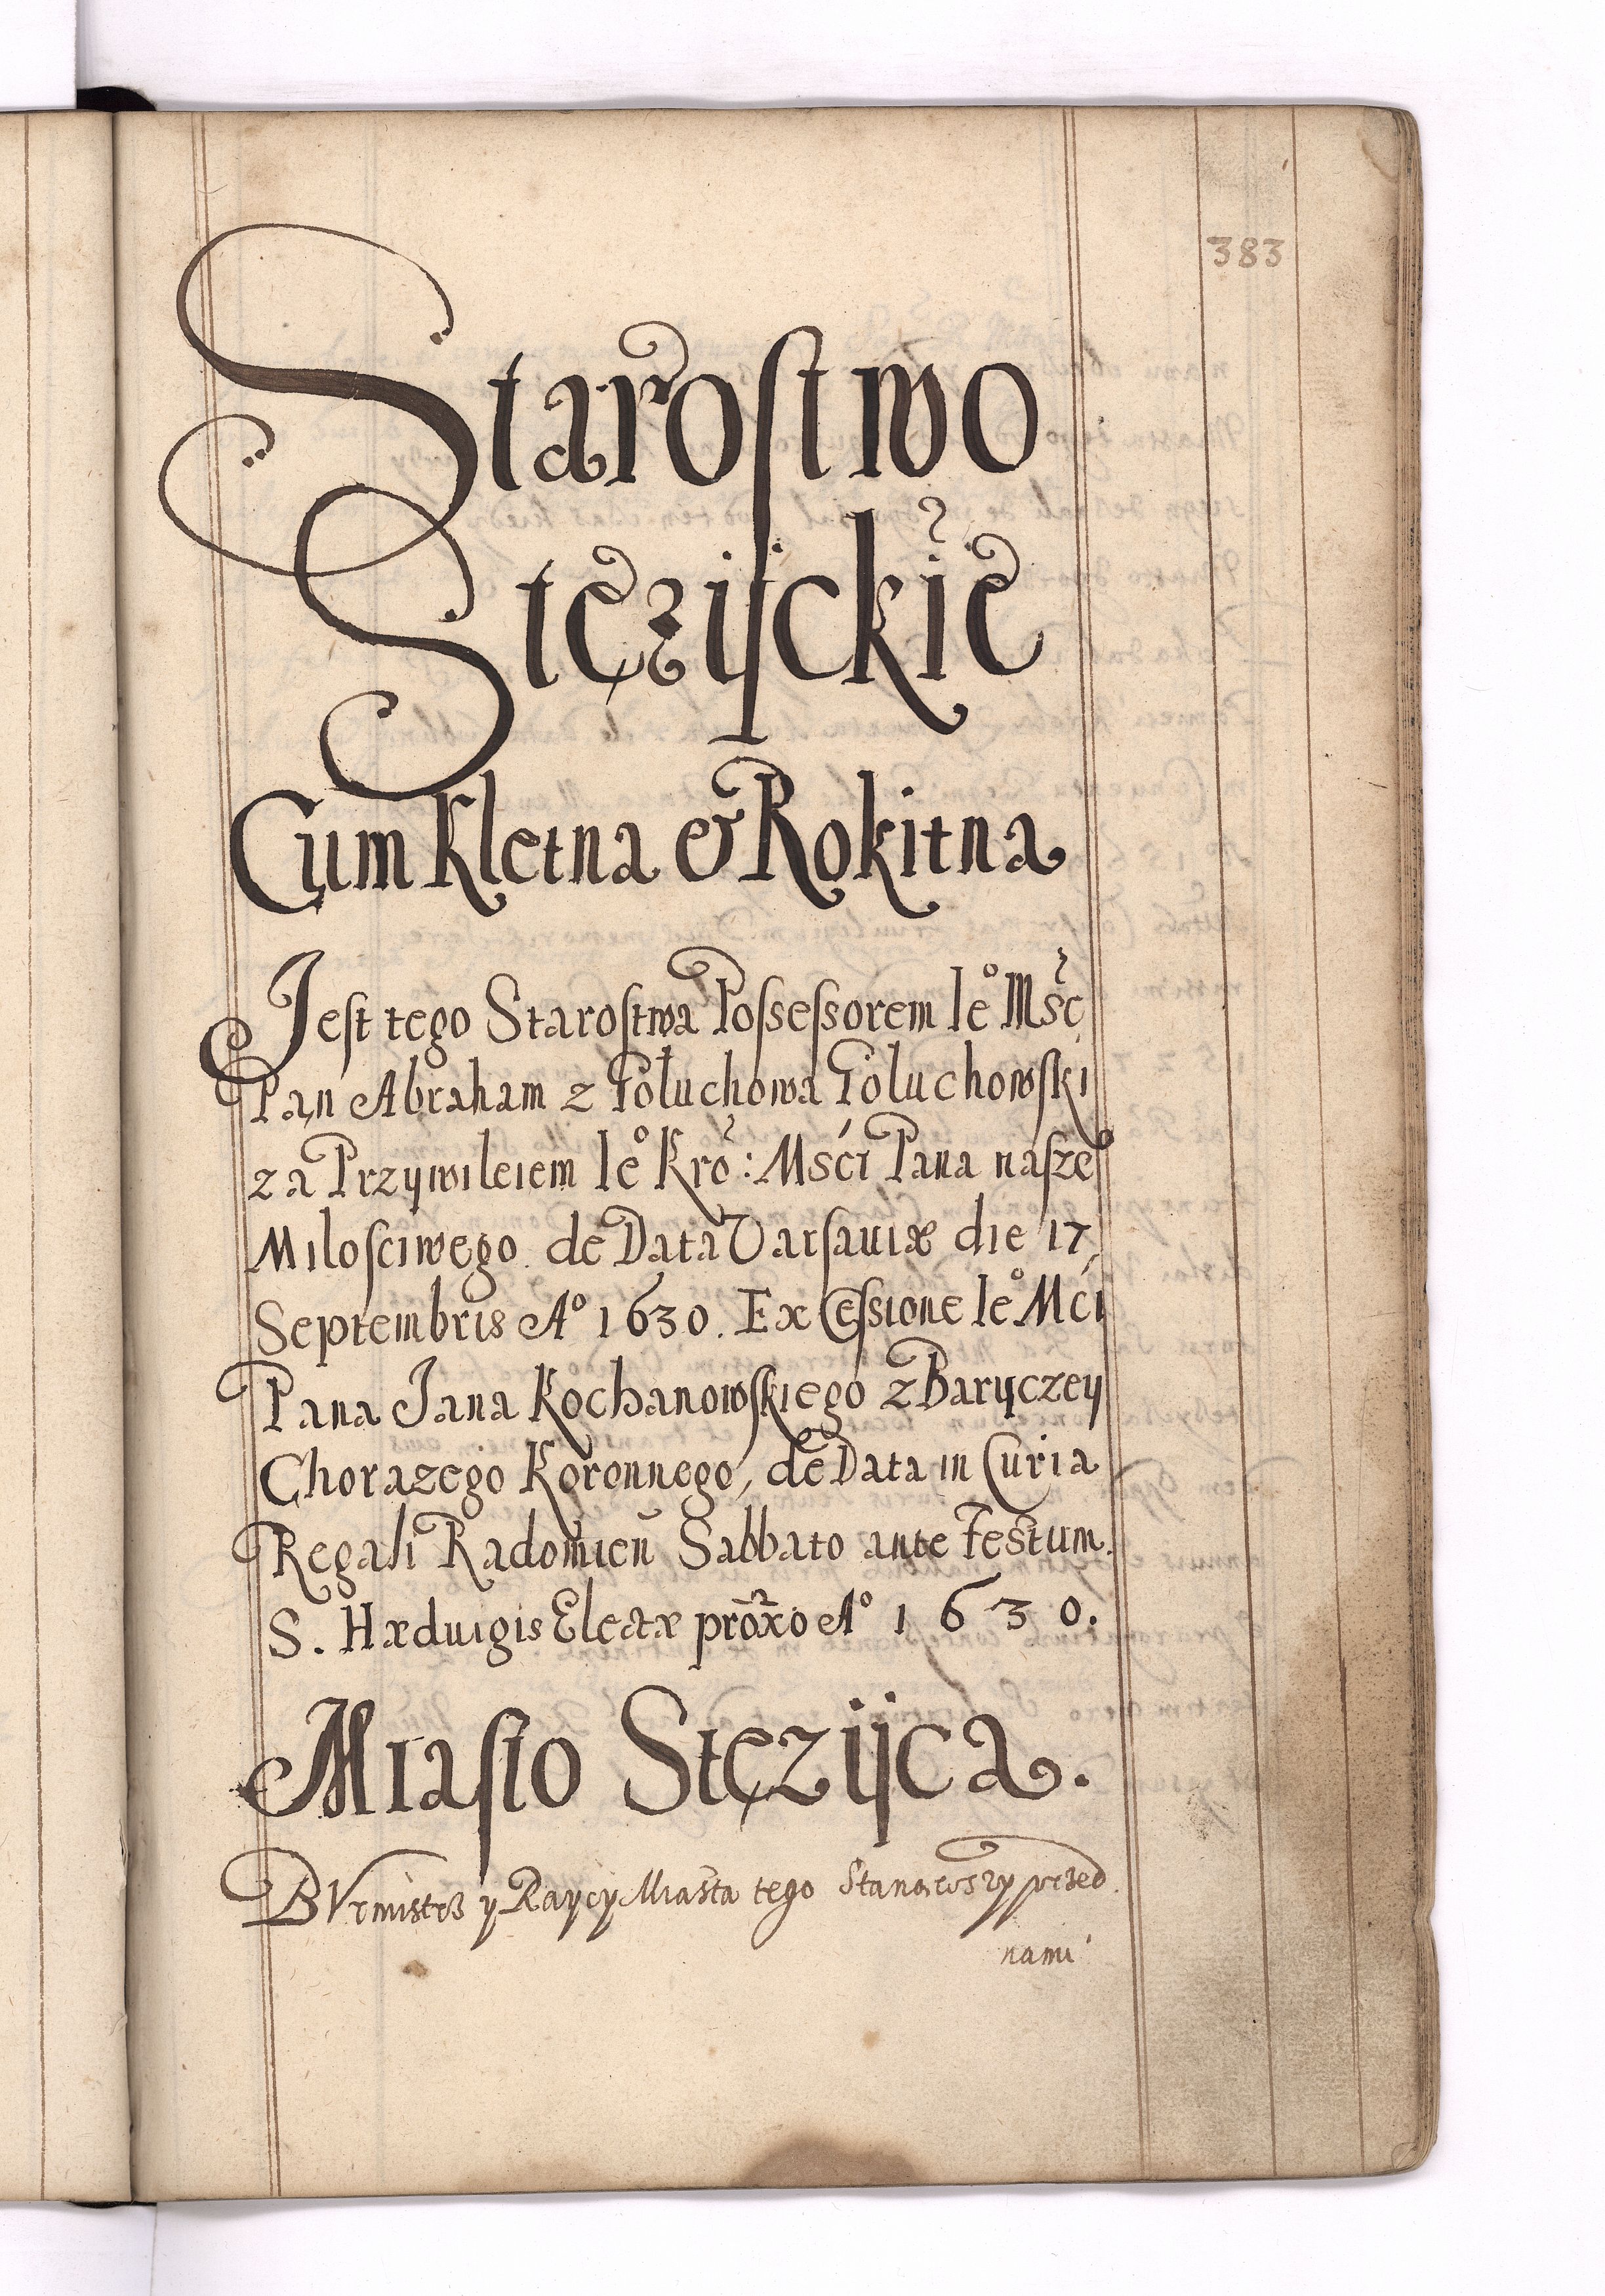 383
Starostwo
Stężijckie
Cum Kletna & Rokitna
Jest tego Starostwa Possessorem Ie° Mśc
Pan Abraham z Goluchowa Goluchowski
za Przywileiem Ie° Kro: Mści Pana nasze°
Milosciwego de Data Varsauiæ die 17
Septembris A° 1630. Ex Cessione Ie° Mci
Pana Jana Kochanowskiego z Baryczey
Chorazego Koronnego, de Data in Curia
Regali Radomien̄ Sabbato ante Festum
S. Hæduigis Electæ prōxo A° 1630.
Miasto Stęzijca.
BVrmistrz y Raycy Miasta tego Stanąwszy przed
nami